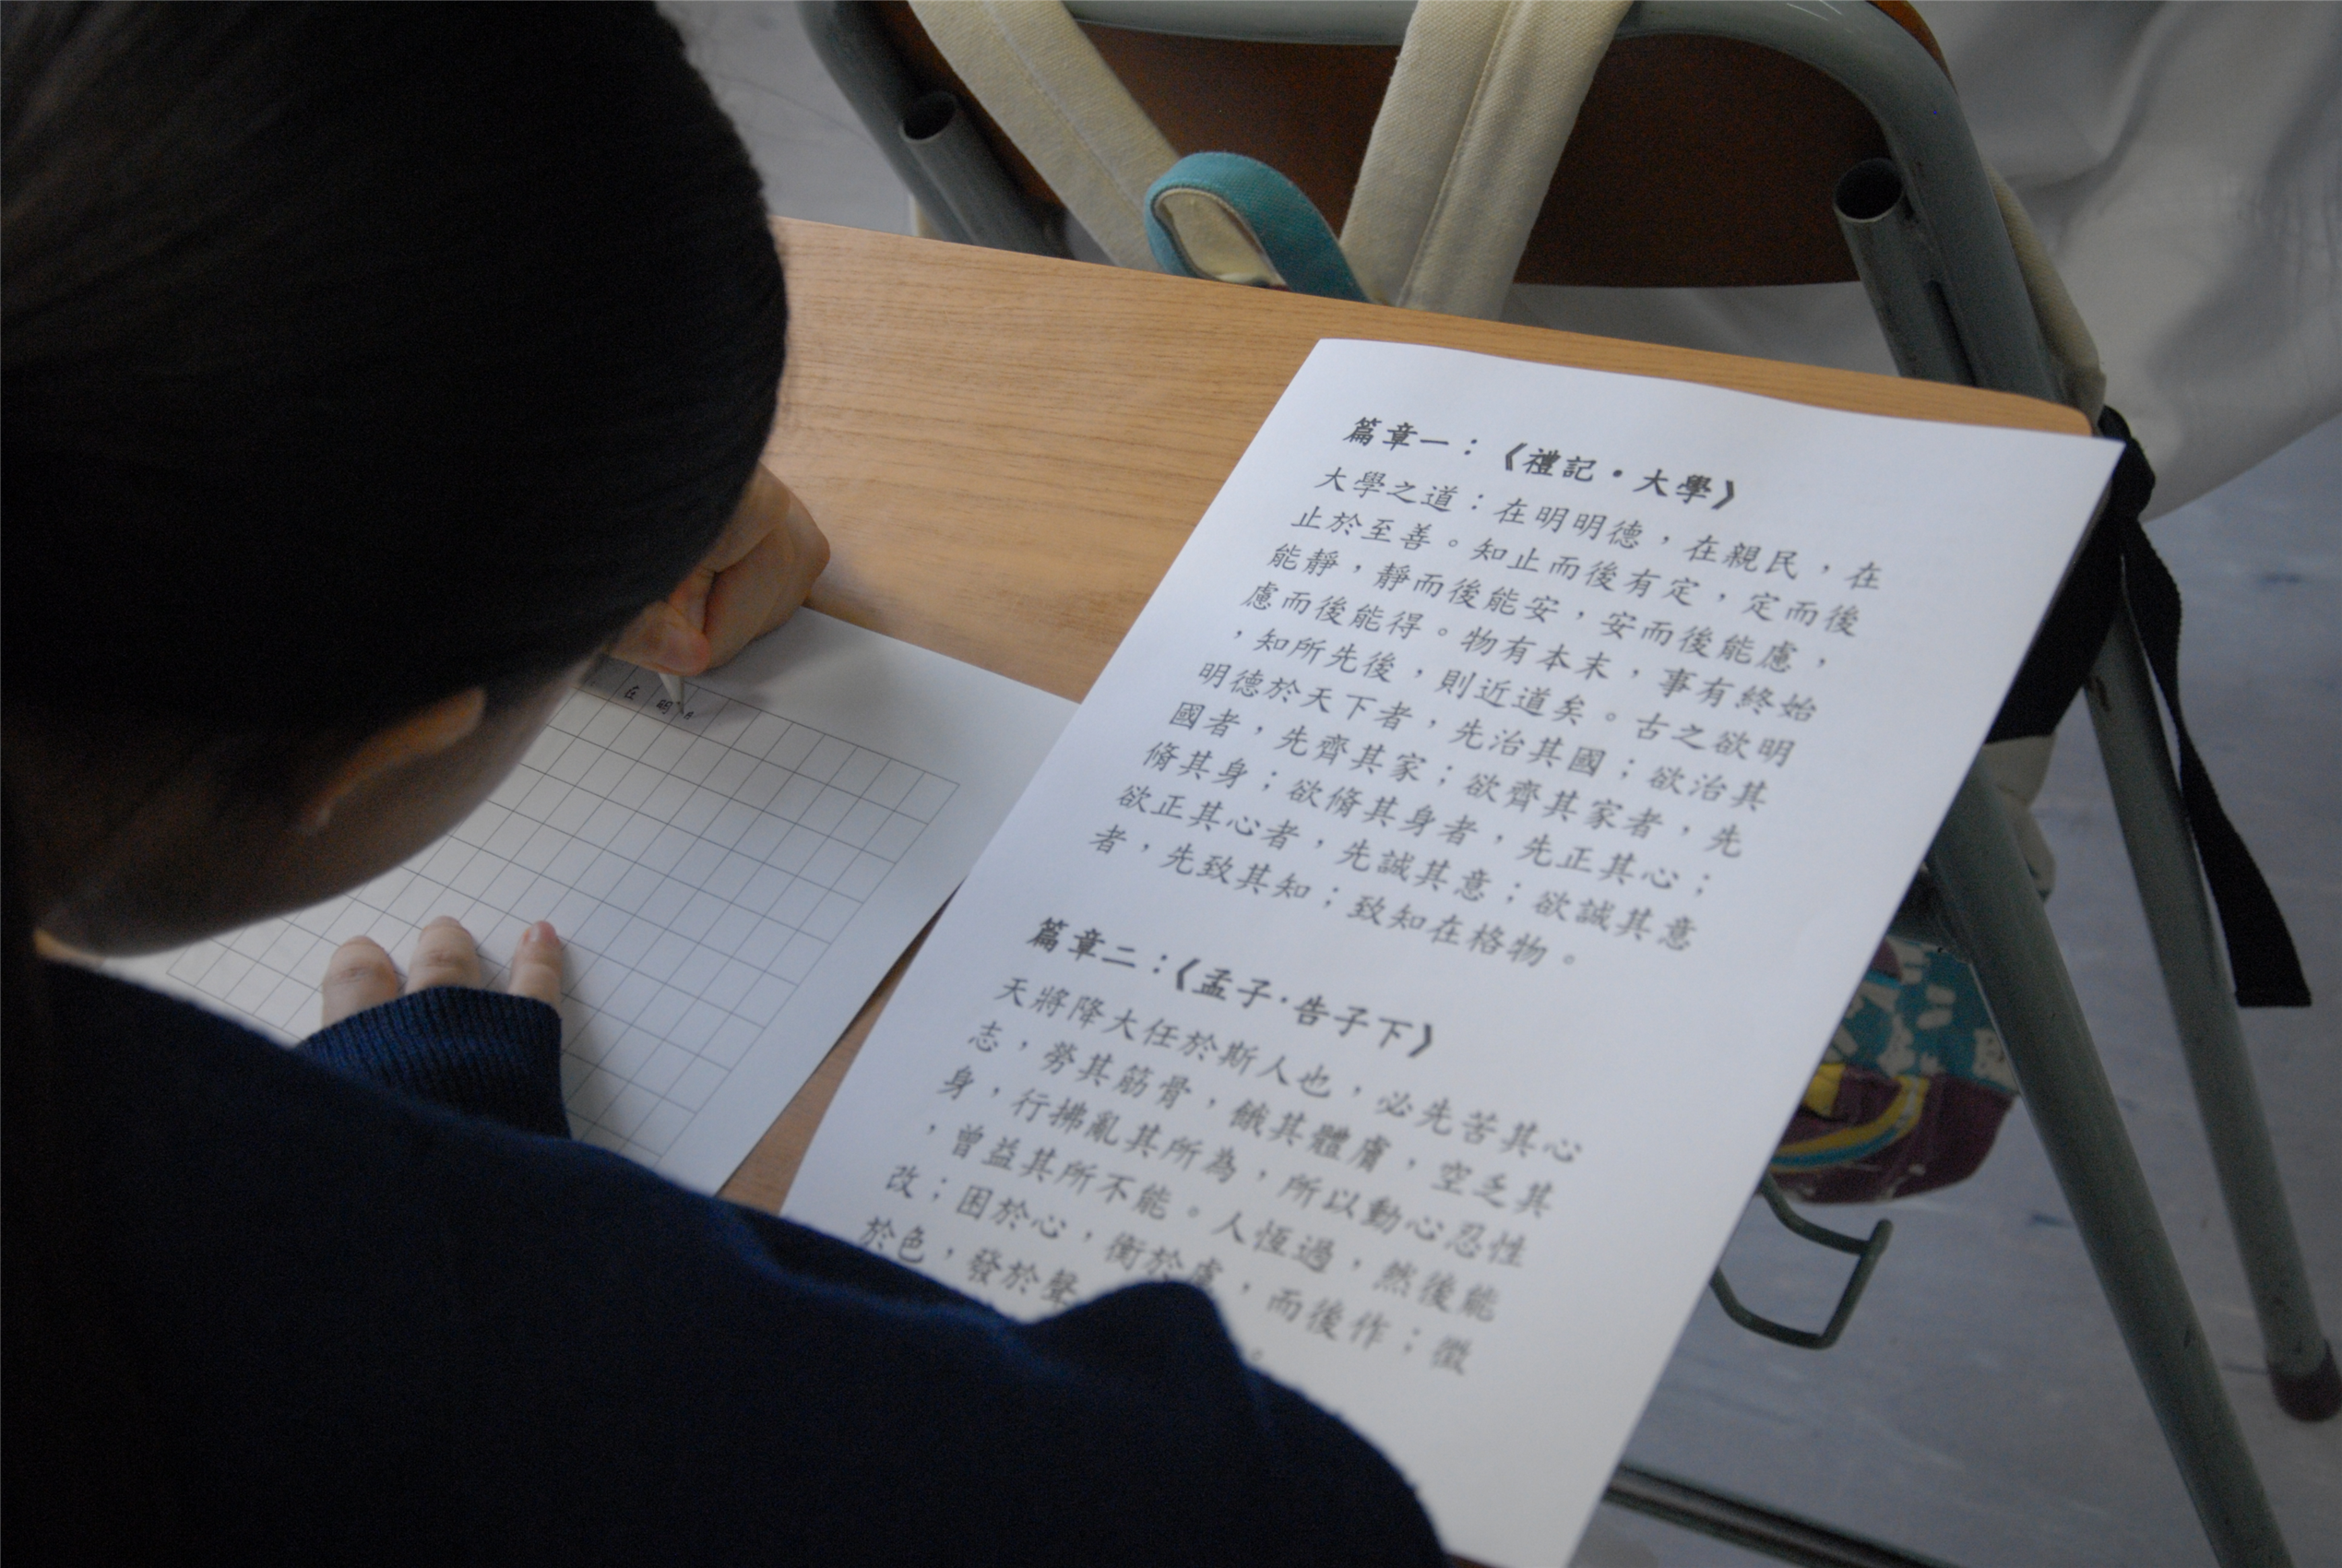 篇章一：《禮記•大學》
大學之道：在明明德，在親民，在
止於至善。知止而後有定，定而後
能靜，靜而後能安，安而後能慮，
慮而後能得。物有本末，事有終始
，知所先後，則近道矣。古之欲明
明德於天下者，先治其國；欲治其
國者，先齊其家；欲齊其家者，先
脩其身；欲脩其身者，先正其心；
欲正其心者，先誠其意；欲誠其意
者，先致其知；致知在格物。
篇章二：《孟子·告子下》
天將降大任於斯人也，必先苦其心
志，勞其筋骨，餓其體膚，空乏其
身，行拂亂其所為，所以動心忍性
，曾益其所不能。人恆過，然後能
改；困於心，衡於慮，而後作；徵
於色，發於聲
在明